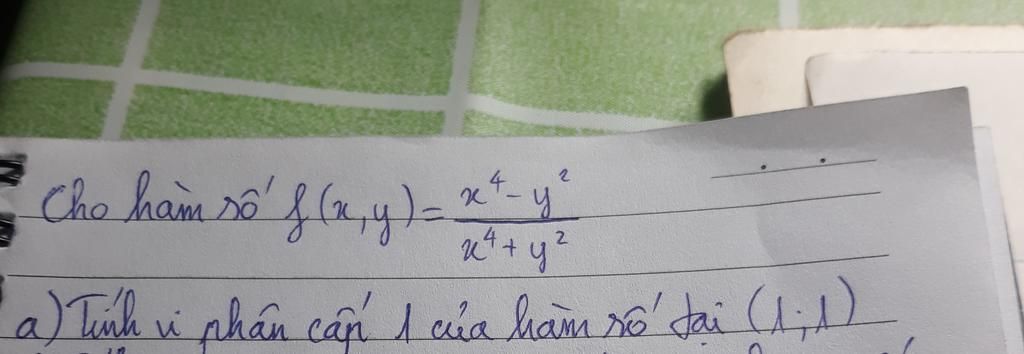 Cho hàm số f(x,y) = \frac{x^4 - y^2}{x^4 + y^2}
a) Tính vi phân cấp 1 của hàm số tại (1;1)